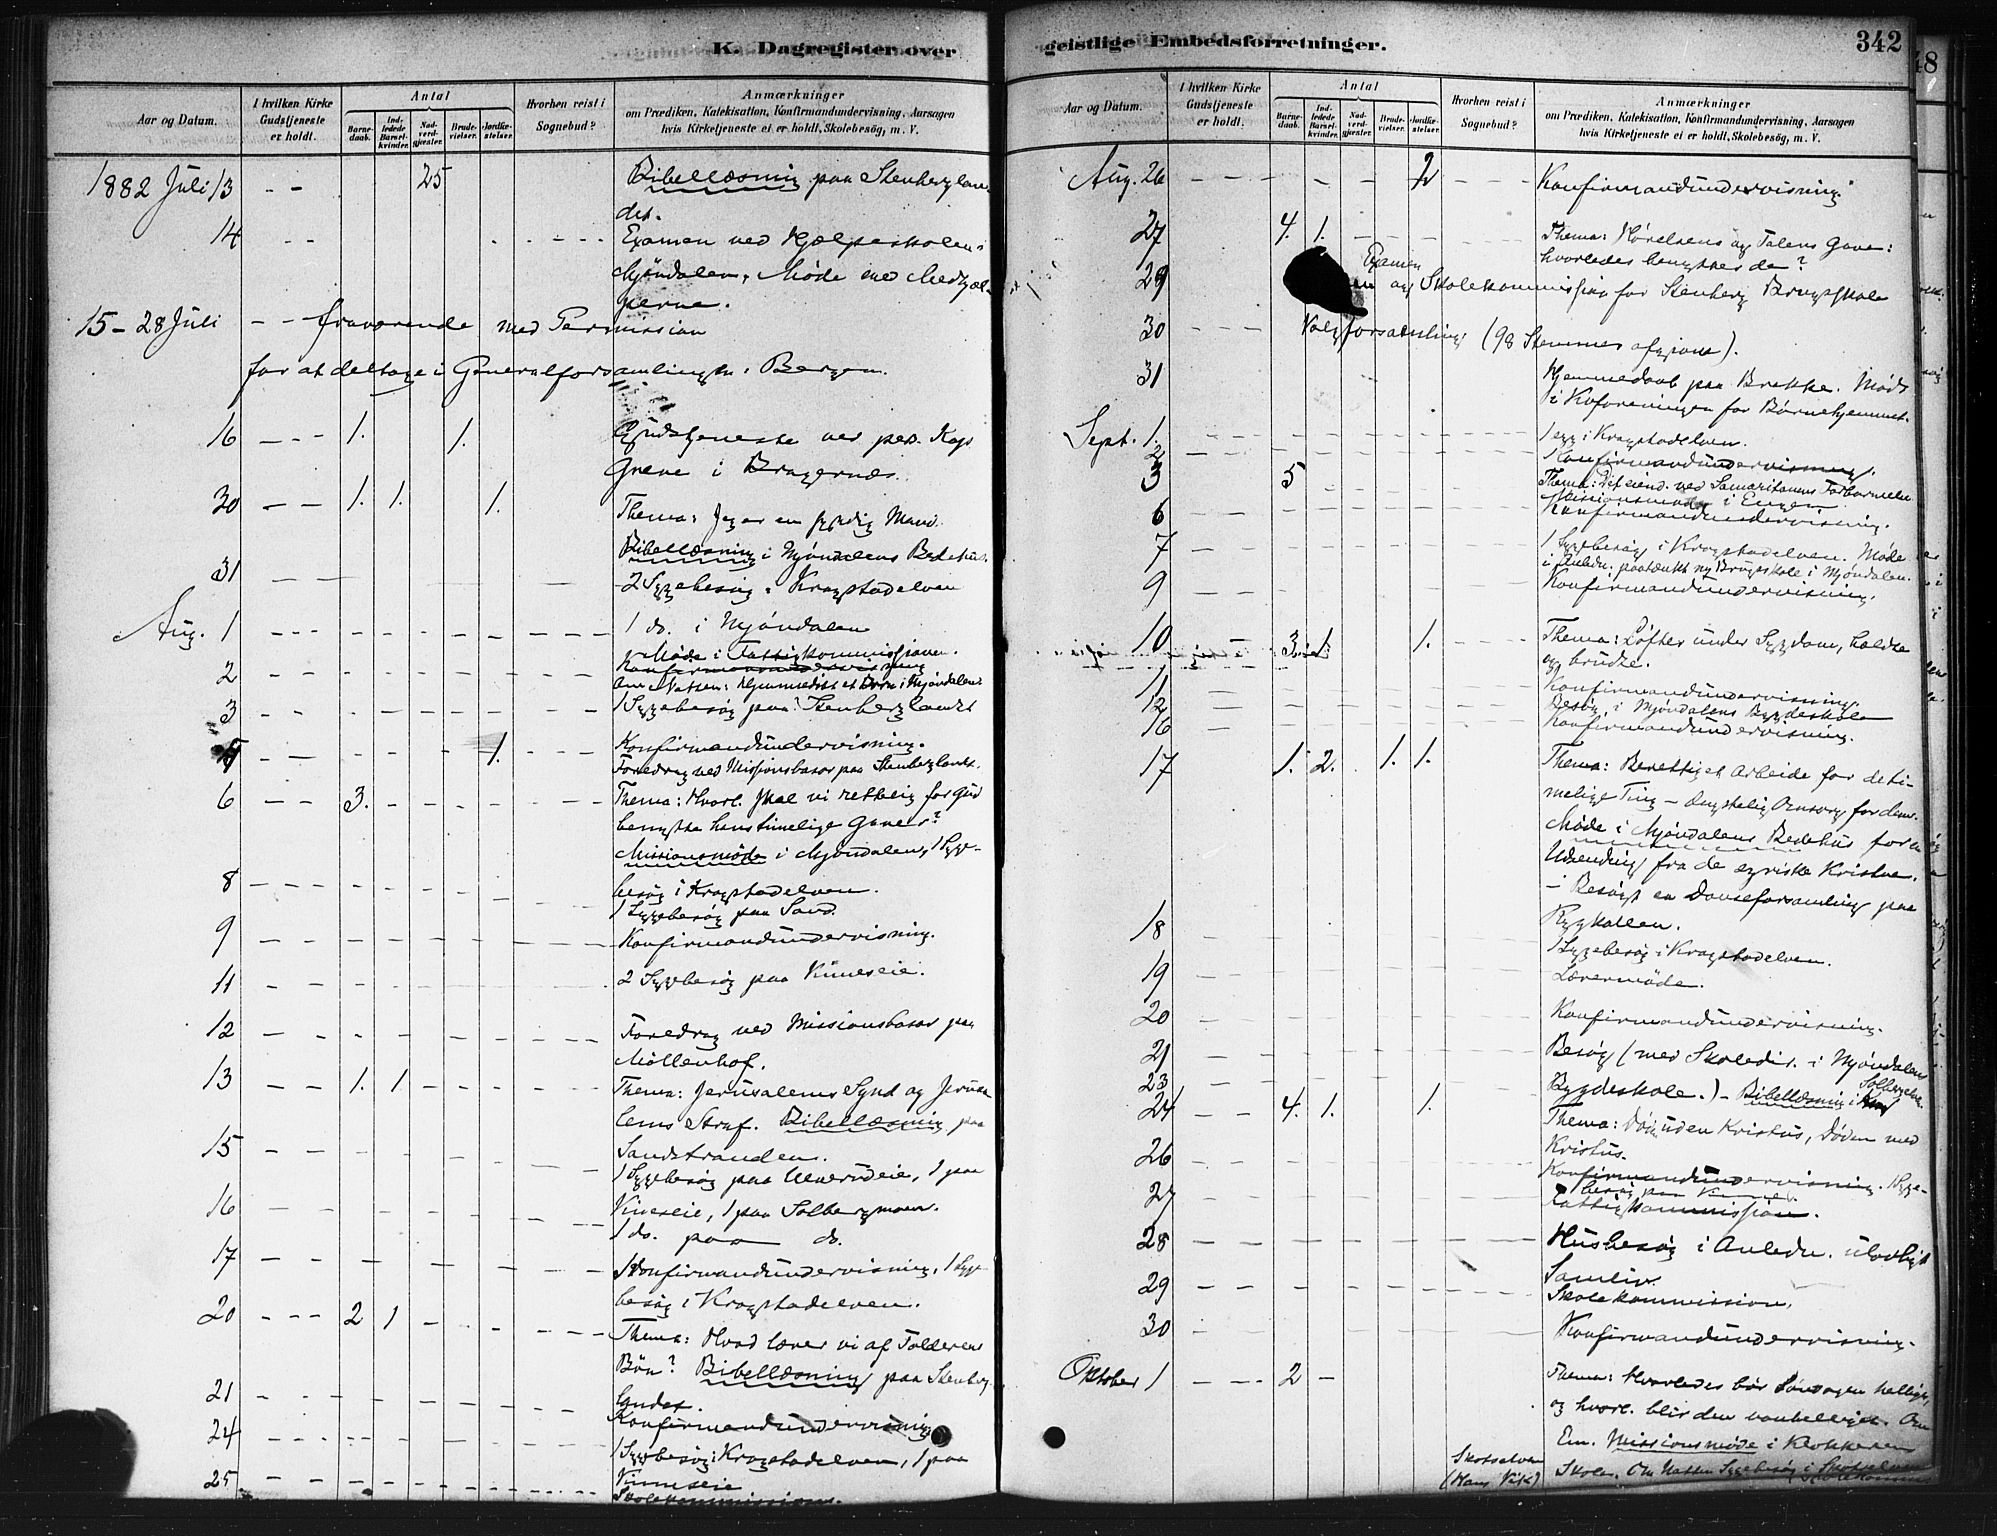 K. Dagregister over
Aar og Datum.
I hvilken Kirke Gudstjeneste er holdt.
Antal
Barne-daab.
Ind-ledede Barsel-kvinder.
Nad-verd-gjæster.
Brude-vielser.
Jordfæ-stelser.
Hvorhen reist i Sognebud?
Anmærkninger
om Prædiken, Katekisation, Konfirmandundervisning, Aarsagen
hvis Kirketjeneste ei er holdt, Skolebesøg, m. V.
1882 Juli 13 25 Bibellæsning paa Stenberglan-
det.
14 Examen ved Hjælpeskolen i
Mjøndalen, Møde med Medhjæl-
perne.
15-28 Juli fraværende med Permission
for at deltage i Generalforsamlingen i Bergen.
16 1. 1. Gudstjeneste ved pers. Kap.
Greve i Bragernæs
30 1. 1. 1. Thema: Jeg er en syndig Mand.
Bibellæsning i Mjøndalens Bedehus.
31 2 Sygebesøg i Krogstadelven
Aug. 1 1 do. i Mjøndalen
Møde i Fattigkommissionen.
2 Konfirmandundervisning
Om Natten: Hjemmedøbt et Barn i Mjøndalen
3 1 Sygebesøg paa Stenberglandet
Konfirmandundervisning.
5 1. Foredrag ved Missionsbasar paa Stenberglandt.
6 3. Thema: Hvorl. skal vi retteligt for Gud
benytte hans timelige Gaver?
Missionsmøde i Mjøndalen, 1 Syge-
8 besøg i Krogstadelven.
1 Sygebesøg paa Sand.
9 Konfirmandundervisning.
11 2 Sygebesøg paa Kineseie.
12 Foredrag ved Missionsbasar paa
Møllenhof.
13 1. 1 Thema: Jerusalems Synd og Jerusa-
lems Straf. Bibellæsning paa
15 Sandstranden.
1 Sygebesøg paa 1 paa
16 Kineseie, 1 paa Solbergmoen.
1 do. paa do.
17 Konfirmandundervisning, 1 Syge-
besøg i Krogstadelven.
20 2 1 Thema: Hvad lærer vi af Tolderens
Bøn? Bibellæsning paa Stenberg-
21 landet.
Konfirmandundervisning
24 1 Sygebesøg i Krogstadelven, 1 paa
25 Kineseie
Skolekommission.
geistlige Embedsforretninger.
342
Aar og Datum.
I hvilken Kirke Gudstjeneste er holdt.
Antal
Barne-daab.
Ind-ledede Barsel-kvinder.
Nad-verd-gjæster.
Brude-vielser.
Jordfæ-stelser.
Hvorhen reist i Sognebud?
Anmærkninger
om Prædiken, Katekisation, Konfirmandundervisning, Aarsagen
hvis Kirketjeneste ei er holdt, Skolebesøg, m. V.
Aug. 26 2 Konfirmandundervisning
27 4. 1. Thema: Hørelsens og Talens Gave:
hvorledes benyttes de?
29 Examen og Skolekommission for Stenberg Brugsskole
30 Valgforsamling (98 Stemmer afgivne).
31 Hjemmedaab paa Brekke. Møde
i Kvforeningen for Børnehjemmet.
Sept. 1. 1 syg i Krogstadelven.
2 Konfirmandundervisning.
3 5 Thema: Det eiend. ved Samaritanens Forbarmelse
Missionsmøde i Engen
6 Konfirmandundervisning.
7 1 Sygebesøg i Krogstadelven. Møde
i Anledn. paatænkt ny Brugsskole i Mjøndalen.
9 Konfirmandundervisning.
10 3 1. 1. Thema: Løfter under Sygdom, holdte
og brudte.
11 Konfirmandundervisning.
12 Besøg i Mjøndalens Bygdeskole
16 Konfirmandundervisning.
17 1. 2. 1. 1. Thema: Berettiget Arbeide for de ti-
melige Ting - ængstelig Omsorg for dem.
Møde i Mjøndalens Bedehus for en
Udsending fra de syriske Kristne.
- Besøgt en Danseforsamling paa
18 Rygkollen.
1 Sygebesøg i Krogstadelven.
19 Lærermøde.
20 Konfirmandundervisning.
21 Besøg (med Skoledir. i Mjøndalens
23 Bygdeskole.) - Bibellæsning i Solbergelven
24 4. 1. 1. Thema: Døden uden Kristus, Døden med
Kristus.
26 Konfirmandundervisning. 1 Syge-
besøg paa
27 Fattigkommission.
28 Husbesøg i Anledn. ulovligt
Samliv.
29 Skolekommission.
30 Konfirmandundervisning.
Oktober 1 2 Thema: Hvorledes bør Søndagen helliges,
og hvorl. blir den vanhelliget. Om
Em. Missionsmøde i Klokkerens
Skotselven (Hans Vik) Skole. Om Natten Sygebesøg i Skotselven